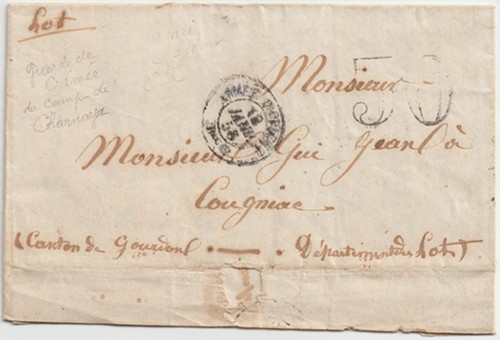 Lot
guerre de
Crimée
du camp de
Monsieur
50
ARMÉE D'ORIENT
18
JANV.
55
Monsieur Gui Jean à
Cougniac
(Canton de Gourdon — Département du Lot)